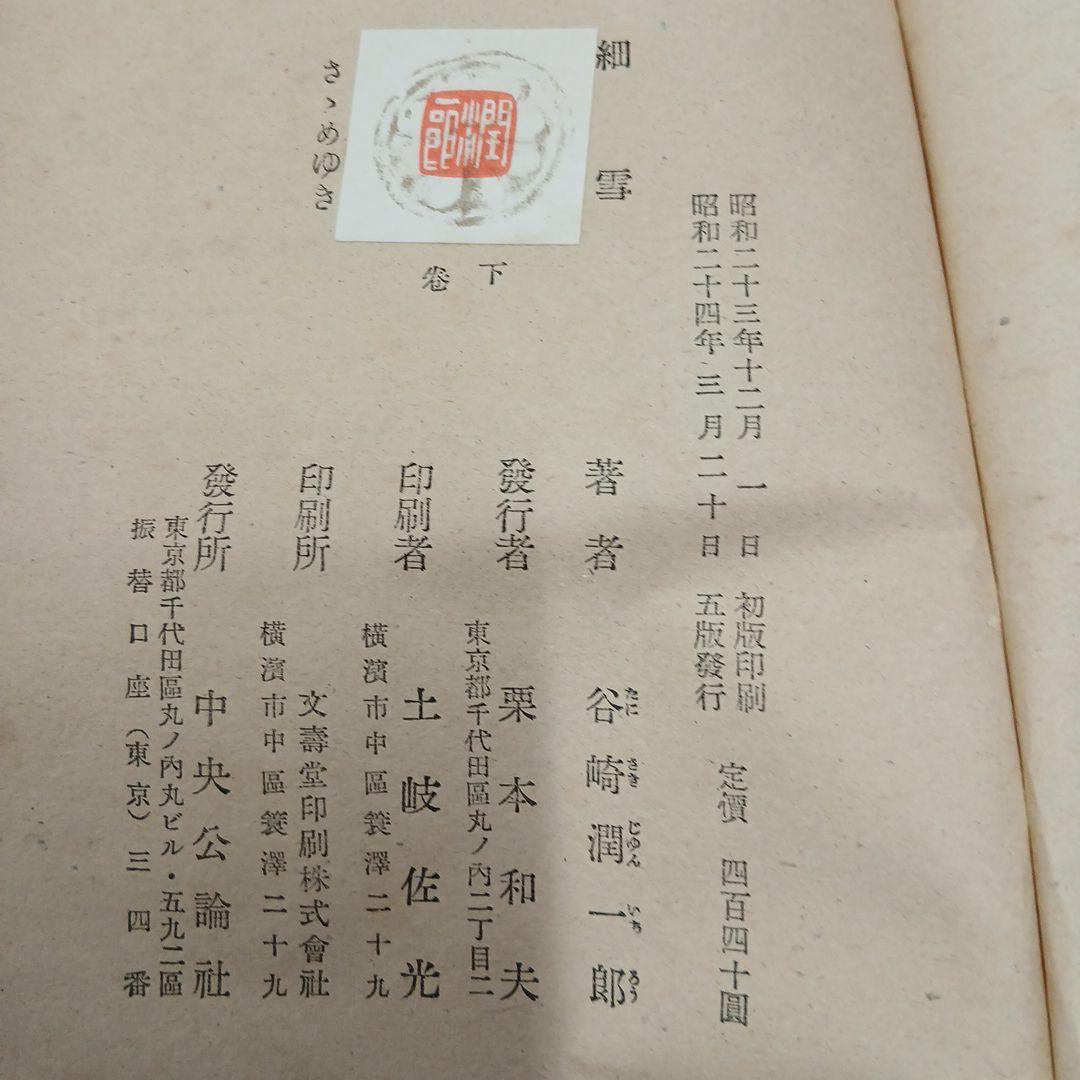 細雪
潤一郎
さゝめゆき
下卷
昭和二十三年十二月一日 初版印刷
昭和二十四年三月二十日 五版發行
定價 四百四十圓
著者 谷崎潤一郎
たにさきじゆんいちらう
發行者 栗本和夫
東京都千代田區丸ノ內二丁目二
印刷者 土岐佐光
橫濱市中區簑澤二十九
印刷所 文壽堂印刷株式會社
橫濱市中區簑澤二十九
發行所 中央公論社
東京都千代田區丸ノ內丸ビル・五九二區
振替口座(東京)三四番